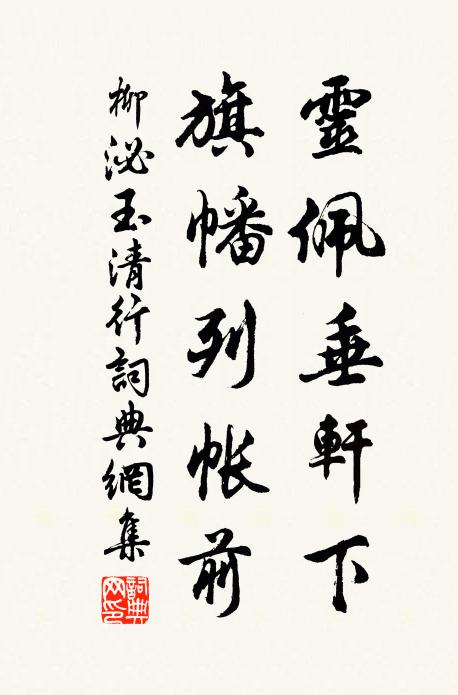 靈佩垂軒下
旗幡列帳前
柳泌玉清行詞典網集
詞典網印